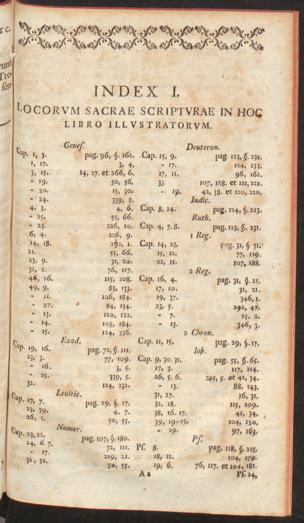 INDEX I.
LOCORVM SACRAE SCRIPTVRAE IN HOC
LIBRO ILLVSTRATORVM.
Genes.
Cap. 1, 3. pag. 96, §. 162.
1, 17. 3, 4.
3, 15. 14, 27. et 266, 6.
- 19. 50, 56.
- 20. 15, 30.
- 24. 339, 5.
4, 3. 4, 6.
- 15. 55, 66.
- 23. 226, 10.
6, 4. 226, 9.
14, 18. 292, 1.
21. 55, 66.
23, 9. 31, 20.
31, 1. 76, 117.
46, 26. 115, 208.
49, 9. 83, 133.
- 11. 106, 184.
- 27. 84, 134.
- 13. 120, 122.
- 14. 105, 184.
- 15. 124, 236.
Exod.
Cap. 19, 16. pag. 72, §. 111.
23, 3. 77, 109.
- 16. 3, 5.
- 25. 339, 5.
32. 124, 232.
Levitic.
Cap. 17, 7. pag. 29, §. 17.
23, 39. 4, 7.
26, 1. 50, 55.
Numer.
Cap. 23, 22. pag. 107, §. 180.
24, 6. 7. 72, 111.
- 17. 219, 21.
32, 52. 50, 55.
Deuteron.
Cap. 15, 9. pag. 123, §. 231.
- 17. 124, 233.
17, 11. 96, 161.
33. 107, 188. et 121, 222.
- 19. 42, 38. et 120, 220.
Iudic.
Cap. 8, 24. pag. 124, §. 223.
Ruth.
Cap. 4, 7. 8. pag. 123, §. 231.
1 Reg.
Cap. 14, 23. pag. 31, § 31.
15, 12. 77, 119.
22, 11. 107, 188.
2 Reg.
Cap. 16, 4. pag. 31, §. 21.
17, 10. 31, 21.
19, 37. 346, 1.
23, 5. 292, 47.
- 7. 25, 2.
- 13. 346, 3.
2 Chron.
Cap. 11, 15. pag. 29, §. 17.
Iob.
Cap. 9, 30. 31. pag. 55, §. 65.
17, 3. 117, 214.
26, 5. 6. 215, 5. et 41, 34.
- 13. 88, 143.
31, 27. 16, 31.
32, 18. 115, 209.
38, 16. 17. 41, 34.
39, 19-25. 104, 130.
- 29. 97, 163.
Ps.
Ps. 8. pag. 118, §. 215.
18, 11. 104, 179.
19, 6. 76, 117. et 104, 181.
A a
Ps. 24,